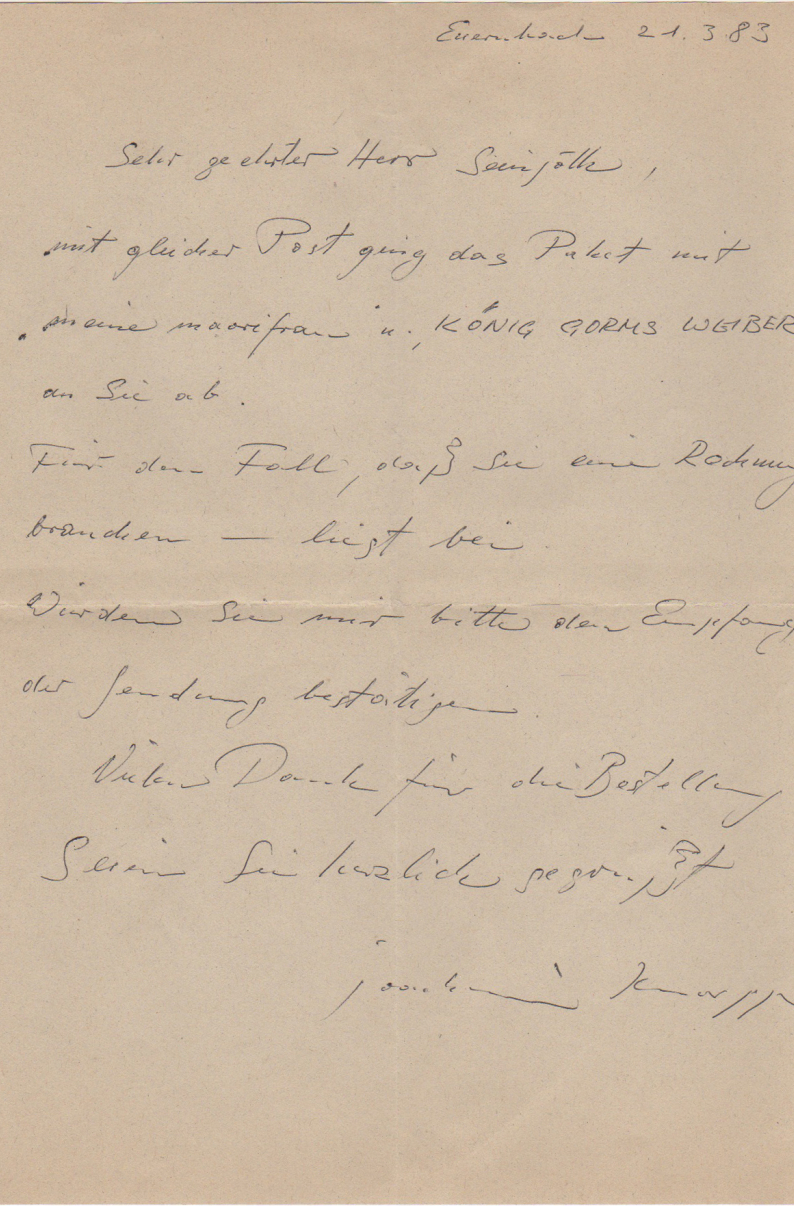 Euernbach 21.3.83
Sehr geehrter Herr
mit gleicher Post ging das Paket mit
meine maorifrau u. KÖNIG GORMS WEIBER
an Sie ab.
Für den Fall, daß Sie eine Rechnung
brauchen — liegt bei.
Würden Sie mir bitte den Empfang
der Sendung bestätigen.
Vielen Dank für die Bestellung
Seien Sie herzlich gegrüßt
joachim Knorpp